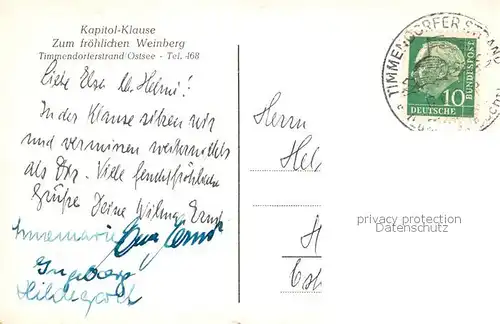 Kapitol-Klause
Zum fröhlichen Weinberg
Timmendorferstrand/Ostsee - Tel. 468
Liebe Elsa u. Helmi!
In der Klause sitzen wir
und vermissen
als Dr. Viele feuchtfröhliche
Grüße Deine Wilma Ernst
Annemarie
Ingeborg
Hildegard
Herrn
Hel
H
TIMMENDORFER STRAND
10
DEUTSCHE
BUNDESPOST
privacy protection
Datenschutz